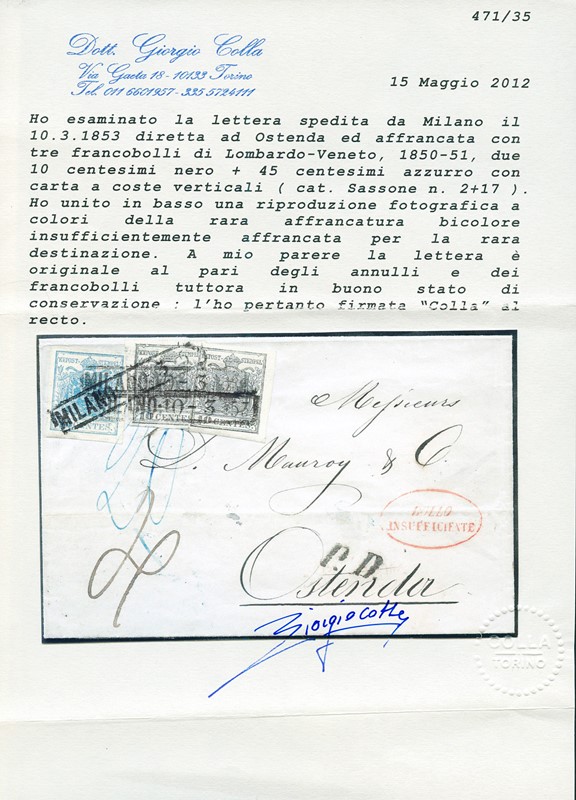 471/35
Dott. Giorgio Colla
Via Gaeta 18 - 10133 Torino
Tel. 011 6601957 - 335 5724111
15 Maggio 2012
Ho esaminato la lettera spedita da Milano il
10.3.1853 diretta ad Ostenda ed affrancata con
tre francobolli di Lombardo-Veneto, 1850-51, due
10 centesimi nero + 45 centesimi azzurro con
carta a coste verticali ( cat. Sassone n. 2+17 ).
Ho unito in basso una riproduzione fotografica a
colori della rara affrancatura bicolore
insufficientemente affrancata per la rara
destinazione. A mio parere la lettera è
originale al pari degli annulli e dei
francobolli tuttora in buono stato di
conservazione : l'ho pertanto firmata "Colla" al
recto.
MILANO
10 CENTES. 10 CENTES.
Messieurs
D. Mauroy & C.
BOLLO
INSUFFICIENTE
P.D.
Ostenda
Giorgio Colla
COLLA
TORINO